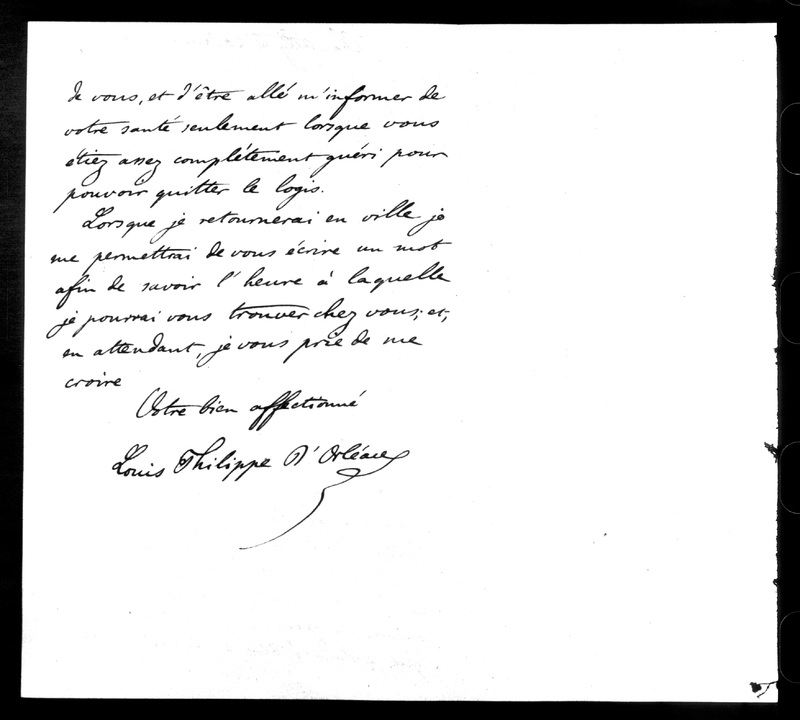 de vous, et d'être allé m'informer de
votre santé seulement lorsque vous
étiez assez complétement guéri pour
pouvoir quitter le logis.
Lorsque je retournerai en ville je
me permettrai de vous écrire un mot
afin de savoir l'heure à laquelle
je pourrai vous trouver chez vous; et,
en attendant, je vous prie de me
croire
Votre bien affectionné
Louis Philippe D'Orléans